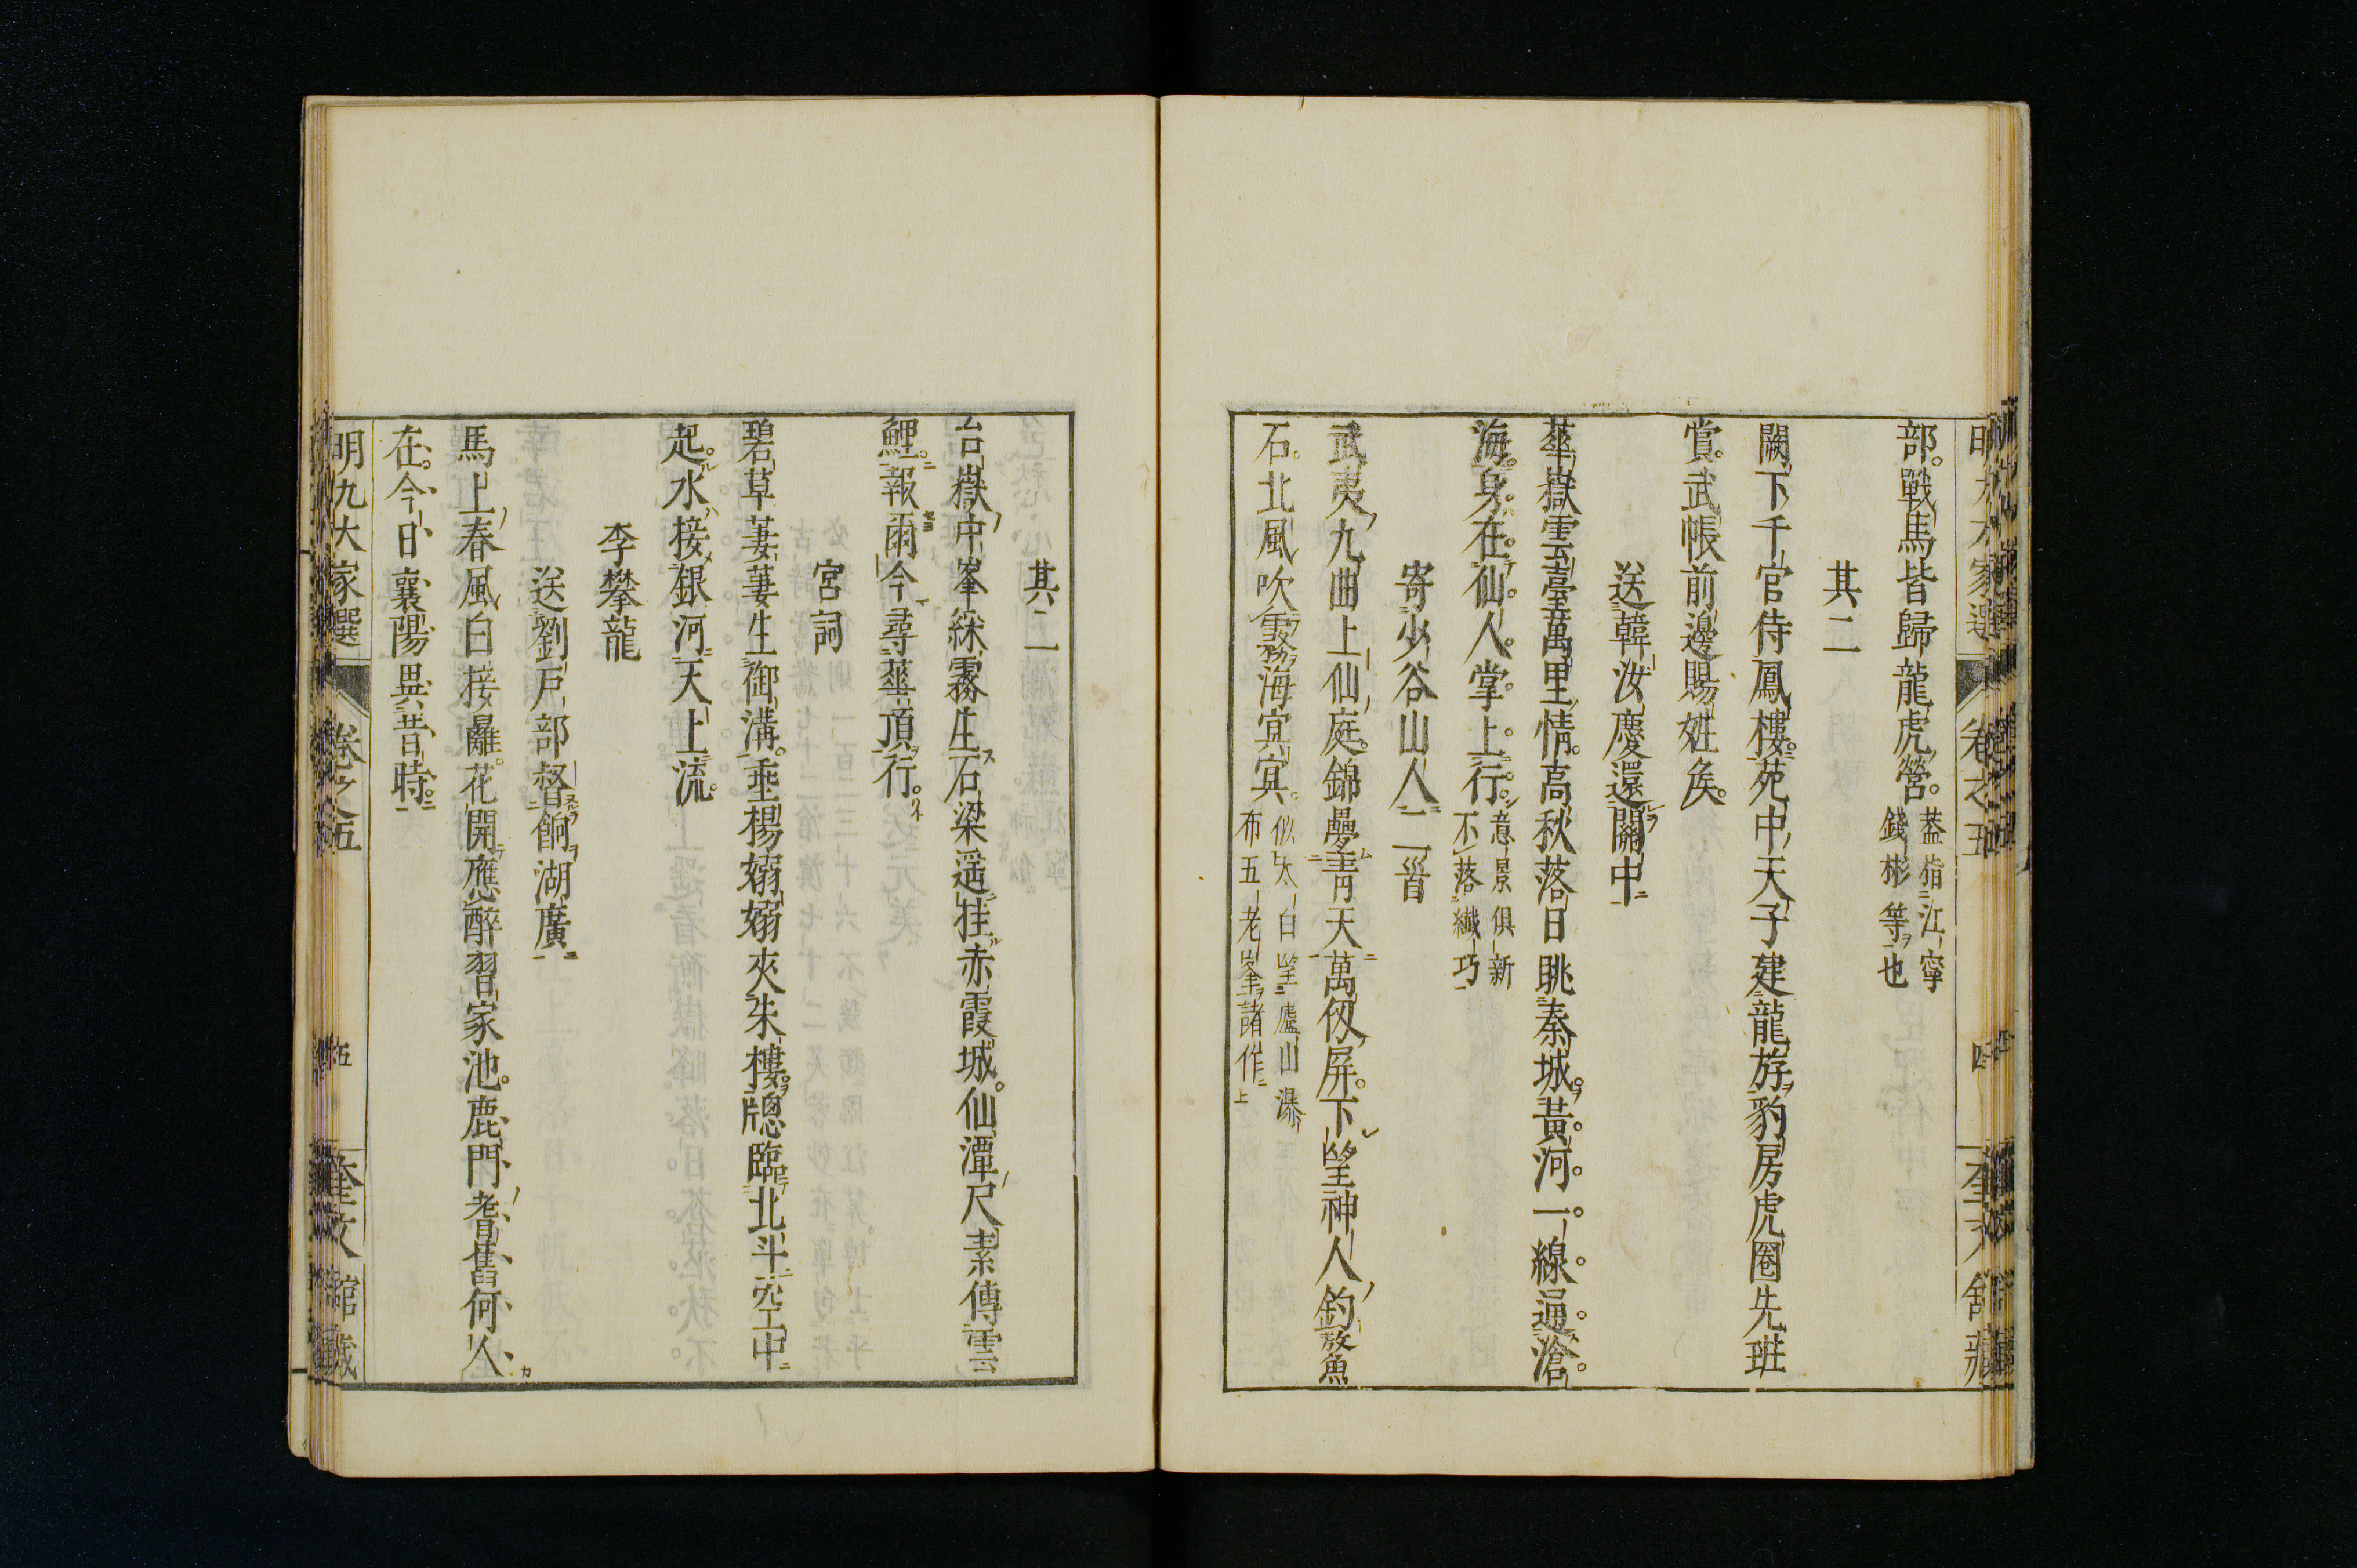 部戰馬皆歸龍虎營
蓋指江寧
錢彬等也
其二
闕下千官侍鳳樓苑中天子建龍斿豹房虎圈先班
賞武帳前邊賜姓矦
送韓汝慶還關中
華嶽雲臺萬里情高秋落日眺秦城黃河一線通滄
海身在仙人掌上行
意景俱新
不落纖巧
寄少谷山人二首
武夷九曲上仙庭錦疊青天萬仭屏下望神人釣鰲魚
石北風吹霧海冥冥
似太白望廬山瀑
布五老峯諸作
其二
台嶽中峯綵霧生石梁遥挂赤霞城仙潭尺素傳雲
鯉報爾今尋華頂行
宮詞
碧草萋萋生御溝垂楊嫋嫋夾朱樓牕臨北斗空中
起水接銀河天上流
李攀龍
送劉戸部督餉湖廣
馬上春風白接䍦花開應醉習家池鹿門耆舊何人
在今日襄陽異昔時
明九大家選
卷之五
五
奎文館藏